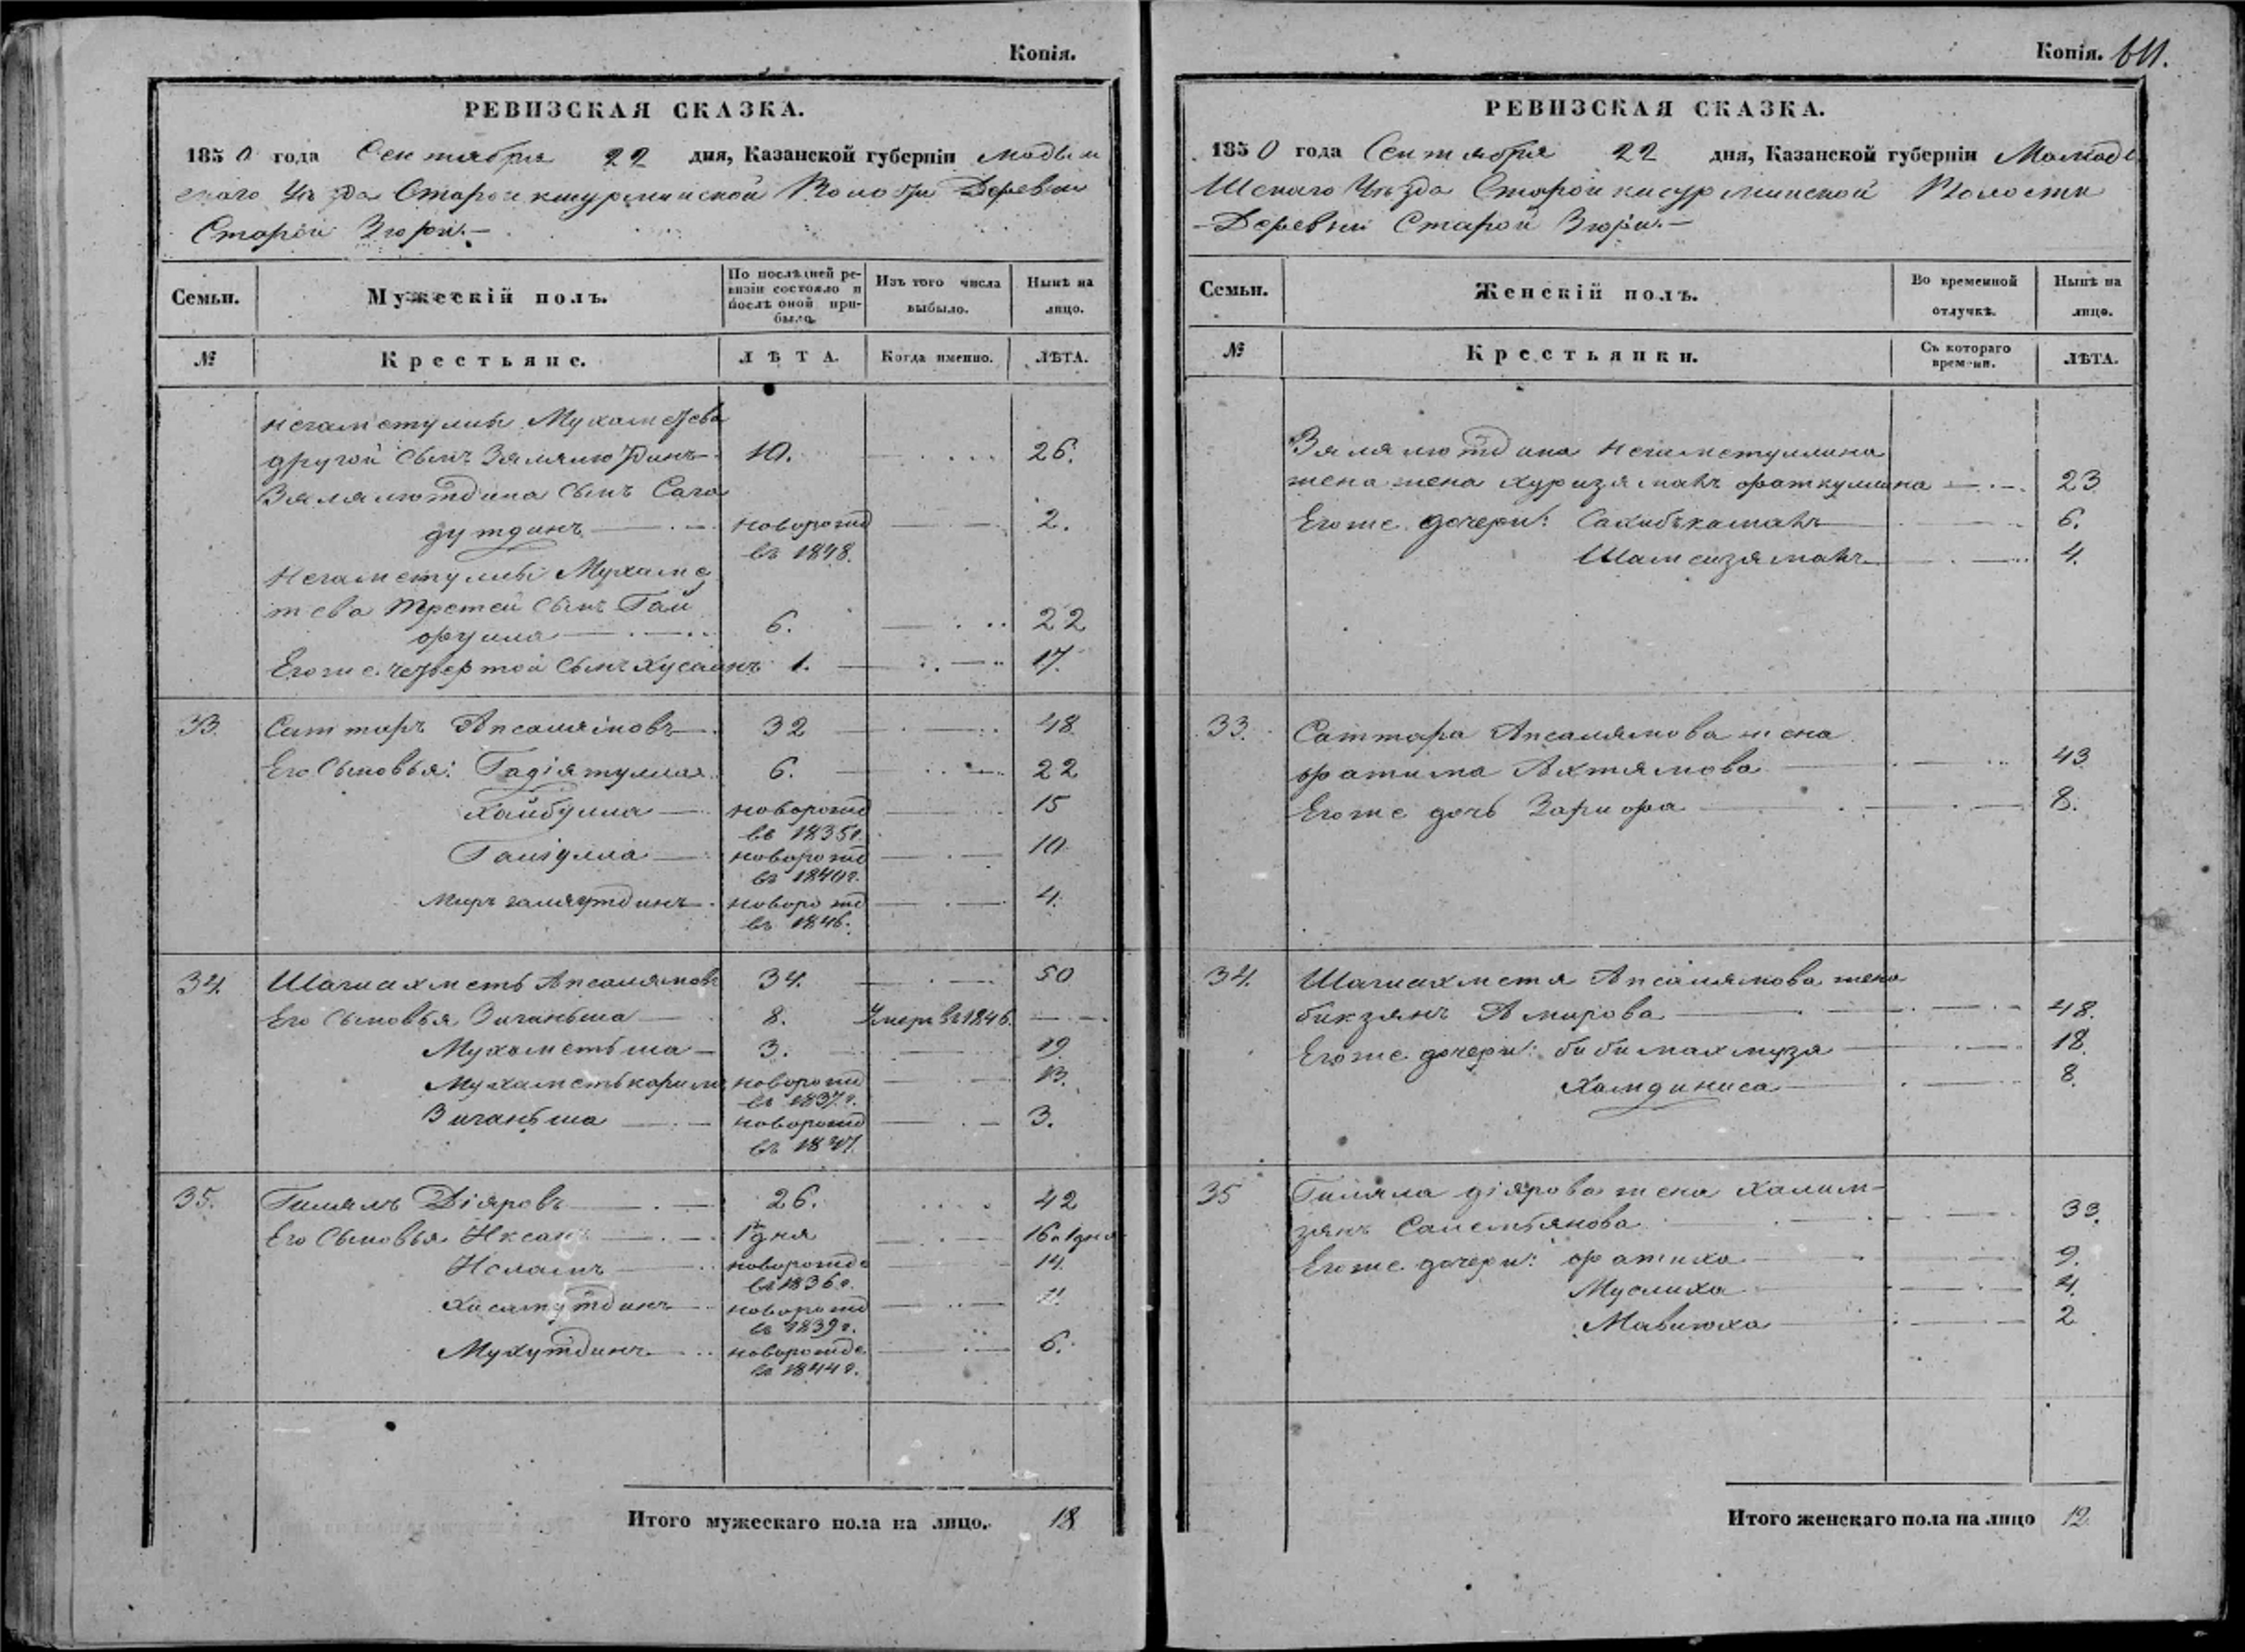 Копія.
РЕВИЗСКАЯ СКАЗКА.
1850 года Сентября 22 дня, Казанской губерніи Мадыш
скаго Уѣзда Старой кшурминской Волости Деревни
Старой Зюри.—
Семьи. Мужескій полъ. По послѣдней ревизіи состояло и послѣ оной прибыло. Изъ того числа выбыло. Нынѣ на лицо.
№ Крестьяне. ЛѢТА. Когда именно. ЛѢТА.
Негаметуллы Мухаметева
другой сынъ Зялялютдинъ 10. 26.
Зялялютдина сынъ Сага
дутдинъ новорожд 2.
въ 1848.
Негаметуллы Мухаме
тева третей сынъ Гай
фулла 6. 22
Егоже четвертой сынъ Хусаинъ 1. 17.
33. Саттаръ Апсалямовъ 32 48
Его Сыновья: Гадіятулла 6. 22
Хайбулла новорожд 15
въ 1835г.
Галіулла новорожд 10
въ 1840г.
Миръ галяутдинъ новорожд 4.
въ 1846.
34. Шагиахметъ Апсалямовъ 34. 50
Его Сыновья Зиганьша 8. Умеръ въ 1846.
Мухаметьша 3. 19.
Мухаметькаримъ новорожд 13.
въ 1837.г.
Зиганьша новорожд 3.
въ 1847.
35. Гилялъ Діяровъ 26. 42
Его Сыновья Иксанъ 1 дня 16 и 1 дня
Исламъ новорожде 14.
въ 1836г.
Хисамутдинъ новорожд 11.
въ 1839г.
Мухутдинъ новорожде 6.
въ 1844г.
Итого мужескаго пола на лицо. 18
Копія. 611.
РЕВИЗСКАЯ СКАЗКА.
1850 года Сентября 22 дня, Казанской губерніи Мамады
Шскаго Уѣзда Старой кшурминской Волости
Деревни Старой Зюри.—
Семьи. Женскій полъ. Во временной отлучкѣ. Нынѣ на лицо.
№ Крестьянки. Съ котораго времени. ЛѢТА.
Зялялютдина Негаметуллина
жена жена Хуризяманъ фаткуллина 23
Егоже дочери: Сахибъкамалъ 6.
Шамсизяманъ 4.
33. Саттара Апсалямова жена
фатима Ахтямова 43
Егоже дочь Зарифа 8.
34. Шагиахметя Апсалямова жена
бикзянъ Амирова 48.
Егоже дочери: бибимахмуза 18.
Хамдиниса 8.
35 Гиляла діярова жена Халим-
зянъ Саисмтянова 33.
Егоже дочери: фатиха 9.
Муслиха 4.
Мавиюха 2
Итого женскаго пола на лицо 12.